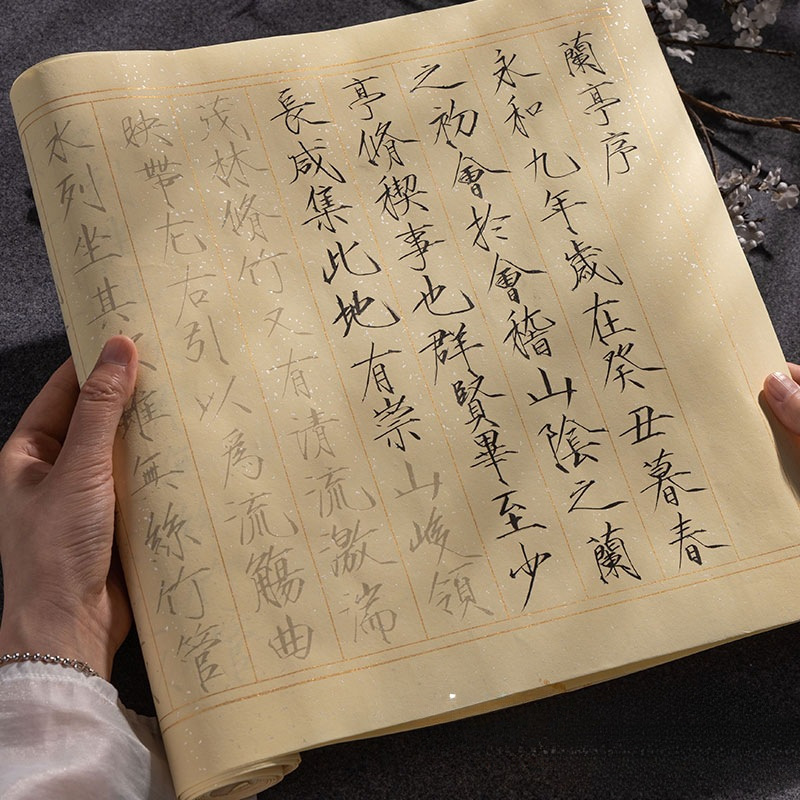 蘭亭序
永和九年歲在癸丑暮春
之初會扵會稽山陰之蘭
亭脩稧事也群賢畢至少
長咸集此地有崇山峻領
茂林脩竹又有清流激湍
映帶左右引以爲流觴曲
水列坐其次雖無絲竹管